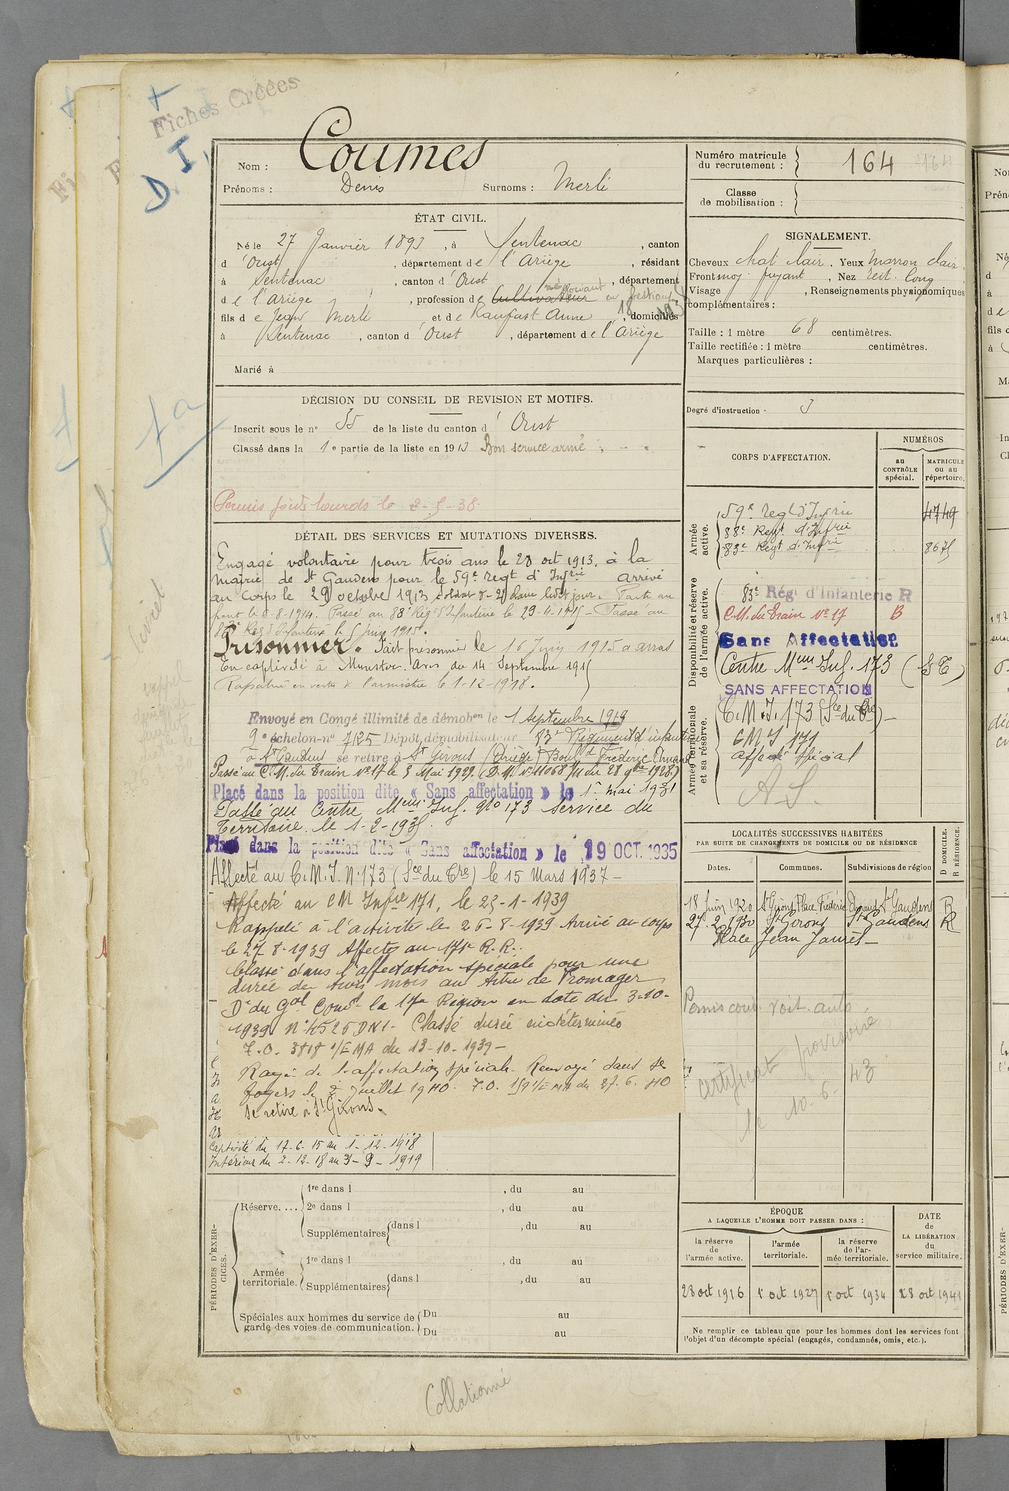 Fiches Créées
D I,
Nom : Coumes
Prénoms : Denis Surnoms : Merli
Numéro matricule du recrutement : 164
Classe de mobilisation :
ÉTAT CIVIL.
Né le 27 Janvier 1893, à Sentenac, canton
d'Oust, département de l'Ariège, résidant
à Sentenac, canton d'Oust, département
de l'Ariège, profession de Cultivateur négociant en
fils de Jean Merli et de Raufast Anne, domiciliés
à Sentenac, canton d'Oust, département de l'Ariège
Marié à
SIGNALEMENT.
Cheveux chat clair. Yeux marron clair.
Front moy. fuyant, Nez rect. long
Visage , Renseignements physionomiques
complémentaires :
Taille : 1 mètre 68 centimètres.
Taille rectifiée : 1 mètre centimètres.
Marques particulières :
Degré d'instruction 3
DÉCISION DU CONSEIL DE REVISION ET MOTIFS.
Inscrit sous le n° 55 de la liste du canton d'Oust
Classé dans la 1e partie de la liste en 1913 Bon service armé
Permis poids lourds le 2-5-38
DÉTAIL DES SERVICES ET MUTATIONS DIVERSES.
Engagé volontaire pour trois ans le 28 oct 1913, à la
mairie de St Gaudens pour le 59e regt d'Infrie Arrivé
au Corps le 29 octobre 1913 soldat de 2e classe
Passé au 88e Régt d'Infanterie le 29-4-1915 - Passé au
83e Régt d'Infanterie le 5 juin 1915.
Prisonnier. Fait prisonnier le 16 Juin 1915 à Arras
En captivité à Munster. Avis du 14 Septembre 1915
Rapatrié en vertu de l'armistice le 1-12-1918.
Envoyé en Congé illimité de démobon le 1 Septembre 1919
9e échelon n° 7125 Dépôt démobilisateur 83e Régiment d'infanterie
à St Gaudens se retire à St Girons (Ariège) Bould Frédéric Arnaud
Passé au C.M. du Train n° 17 le 3 Mai 1929.
Placé dans la position dite « Sans affectation » le 1er mai 1931
Passé au Centre Mm Inf. N° 173 Service du
Territoire. le 1-2-1935
Placé dans la position dite « Sans affectation » le 19 OCT. 1935
Affecté au C.M.I. N° 173 (Sce du Tre) le 15 Mars 1937 -
Affecté au CM Infie 171, le 25-1-1939
Rappelé à l'activité le 26-8-1939 Arrivé au corps
le 27-8-1939 Affecté au 171e R.R.
Classé dans l'affectation spéciale pour une
durée de trois mois au titre de Fromager
Dn du Gal Comdt la 17e Région en date du 3-10-
1939 N° 4526 DN1- Classé durée indéterminée
T.O. 3818 1/EMA du 13-10-1939 -
Rayé de l'affectation spéciale. Renvoyé dans ses
foyers le 2 Juillet 1940. T.O. du 27.6.40
Se retire à St Girons.
Captivité du 17-6-15 au 1-12-1918
Intérieur du 2-12-18 au 3-9-1919
CORPS D'AFFECTATION.
NUMÉROS
au CONTRÔLE spécial.
MATRICULE ou au répertoire.
Armée active.
59e regt d'Infrie 4749
88e Regt d'Infrie
83e Regt d'Infrie 8675
Disponibilité et réserve de l'armée active.
83e Régt d'Infanterie R
C.M. du Train N° 17 B
Sans Affectation
Centre Mm Inf. 173
SANS AFFECTATION
Armée territoriale et sa réserve.
C.M.I. 173 (Sce du Tre) -
CMI 171
affecté spécial
A.S.
LOCALITÉS SUCCESSIVES HABITÉES
PAR SUITE DE CHANGEMENTS DE DOMICILE OU DE RÉSIDENCE
D DOMICILE. R RÉSIDENCE.
Dates. Communes. Subdivisions de région
18 Juin 1920 St Girons Place Frédéric Arnaud St Gaudens R
27-2-1930 St Girons St Gaudens R
Place Jean Jaurès -
Permis cond. voit. auto
certificat provisoire
le 10-6-43
PÉRIODES D'EXERCICES.
Réserve.... 1re dans l , du au
2e dans l , du au
Supplémentaires dans l , du au
Armée territoriale. 1re dans l , du au
Supplémentaires dans l , du au
Spéciales aux hommes du service de garde des voies de communication. Du au
Du au
ÉPOQUE
A LAQUELLE L'HOMME DOIT PASSER DANS :
la réserve de l'armée active.
l'armée territoriale.
la réserve de l'armée territoriale.
DATE de LA LIBÉRATION du service militaire.
28 oct 1916 1 oct 1927 1 oct 1934 28 oct 1941
Ne remplir ce tableau que pour les hommes dont les services font
l'objet d'un décompte spécial (engagés, condamnés, omis, etc.).
Collationné